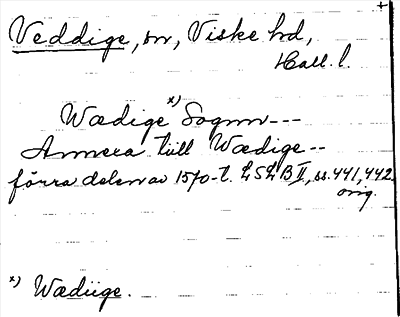 +
Veddige, sn, Viske hd,
Hall. l.
Wædige x) Sognn---
Annexa tiill Wædige--
förra delen av 1570-t. LSL B II, ss. 441, 442.
orig.
x) Wædiige.